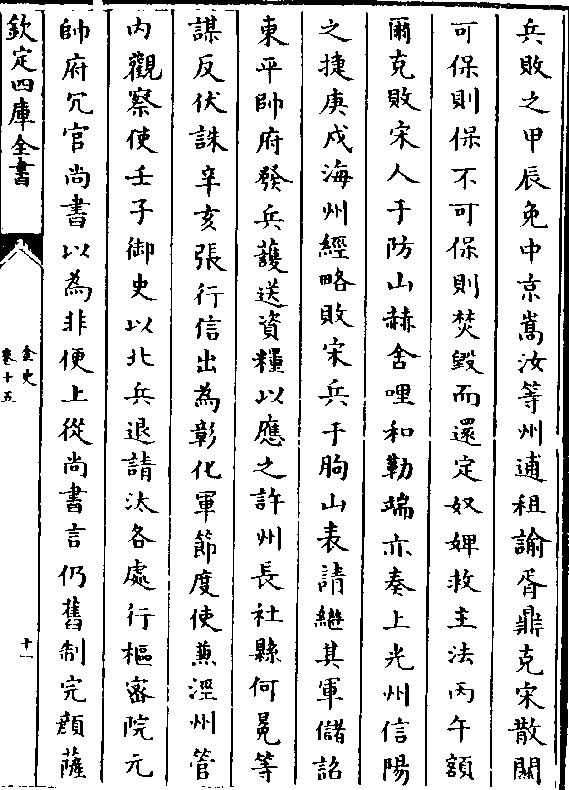 兵敗之甲辰免中京嵩汝等州逋租諭胥鼎克宋散關
可保則保不可保則焚毀而還定奴婢救主法丙午額
爾克敗宋人于防山赫舍哩和勒端亦奏上光州信陽
之捷庚戌海州經略敗宋兵于朐山表請繼其軍儲詔
東平帥府發兵護送資糧以應之許州長社縣何冕等
謀反伏誅辛亥張行信出為彰化軍節度使兼涇州管
内觀察使壬子御史以北兵退請汰各處行樞密院元
帥府冗官尚書以為非便上從尚書言仍舊制完顔薩
欽定四庫全書
金史
卷十五
十一